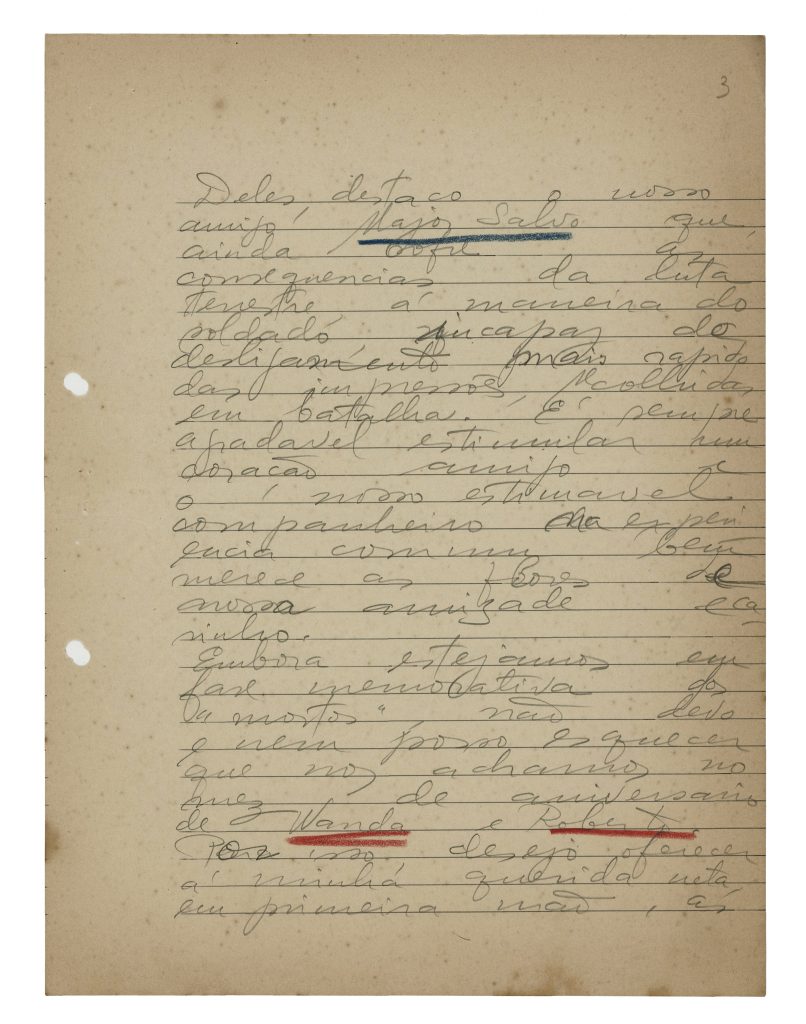 3
Deles, destaco o nosso
amigo, Major Salvo que,
ainda sofre as
consequencias da luta
terrestre á maneira do
soldado incapaz do
desligamento mais rapido
das impressões recolhidas
em batalha. É sempre
agradavel estimular um
coração amigo e
o nosso estimavel
companheiro na experi
encia comum bem
merece as flores de
nossa amizade e ca
rinho.
Embora estejamos em
fase memorativa dos
"mortos", não devo
e nem posso esquecer
que nos achamos no
mez de aniversario
de Wanda e Roberto.
Por isso desejo oferecer
á minha querida neta
em primeira mão, as